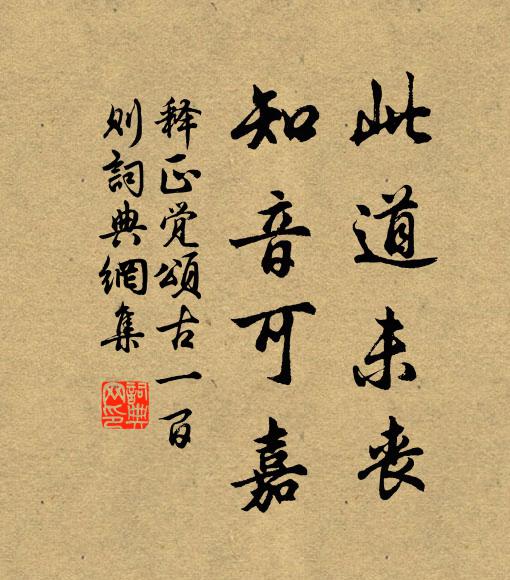 此道未丧
知音可嘉
释正觉颂古一百
则詞典網集
詞典
网印